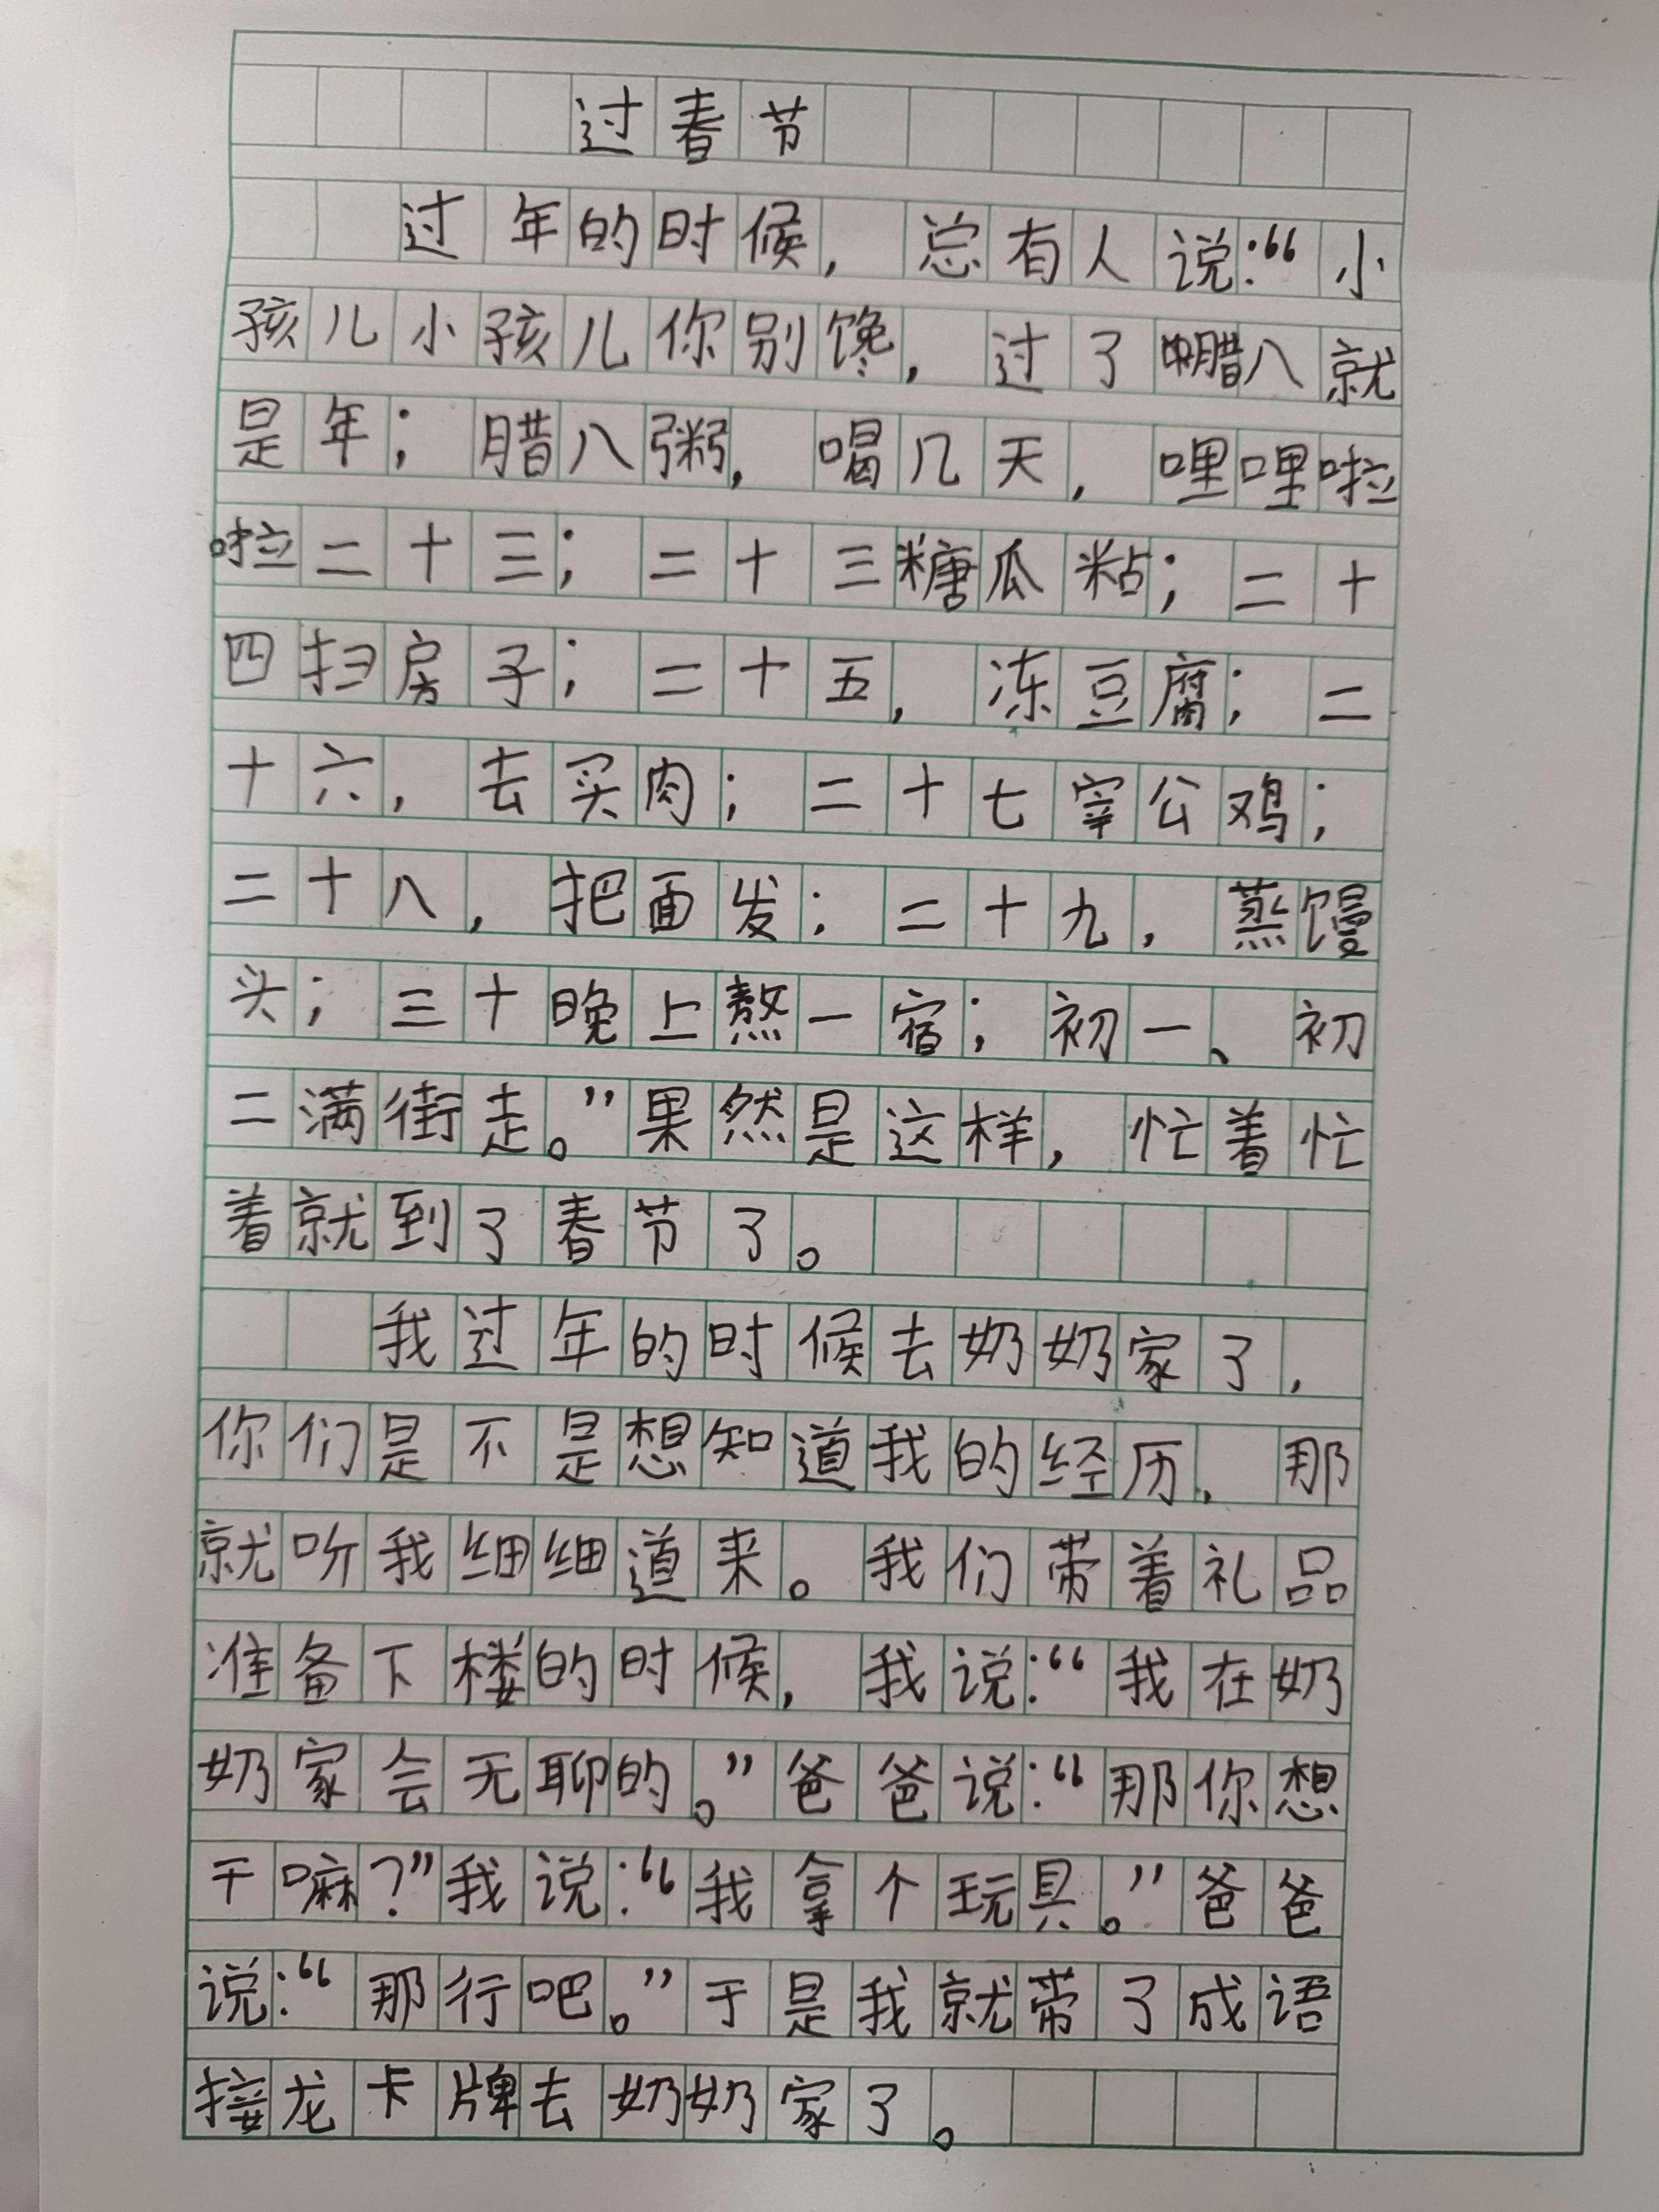 过春节
过年的时候，总有人说：“小
孩儿小孩儿你别馋，过了腊八就
是年；腊八粥，喝几天，哩哩啦
啦二十三；二十三糖瓜粘；二十
四扫房子；二十五，冻豆腐；二
十六，去买肉；二十七宰公鸡；
二十八，把面发；二十九，蒸馒
头；三十晚上熬一宿；初一、初
二满街走。”果然是这样，忙着忙
着就到了春节了。
我过年的时候去奶奶家了，
你们是不是想知道我的经历，那
就听我细细道来。我们带着礼品
准备下楼的时候，我说：“我在奶
奶家会无聊的。”爸爸说：“那你想
干嘛？”我说：“我拿个玩具。”爸爸
说：“那行吧。”于是我就带了成语
接龙卡牌去奶奶家了。